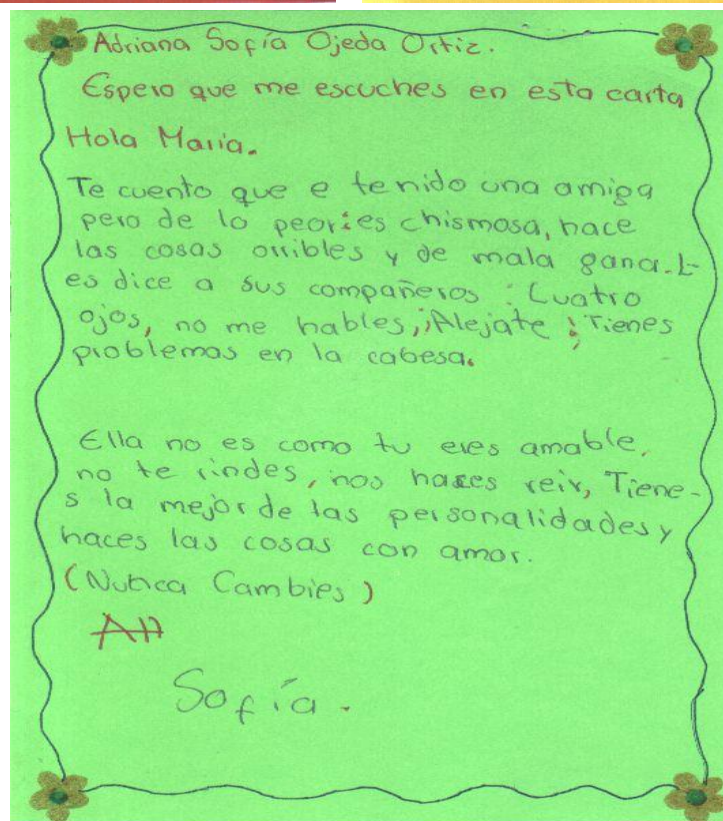 Adriana Sofía Ojeda Ortiz.
Espero que me escuches en esta carta
Hola Maria.
Te cuento que e tenido una amiga
pero de lo peor: es chismosa, hace
las cosas orribles y de mala gana. L-
es dice a sus compañeros : Cuatro
ojos, no me hables, ¡Alejate ! Tienes
problemas en la cabesa.
Ella no es como tu eres amable,
no te rindes, nos haces reir, Tiene-
s la mejor de las personalidades y
haces las cosas con amor.
(Nunca Cambies)
Att
Sofía.